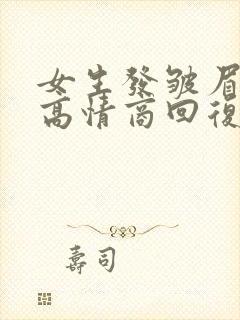 女生發皺眉
高情商回復
壽司